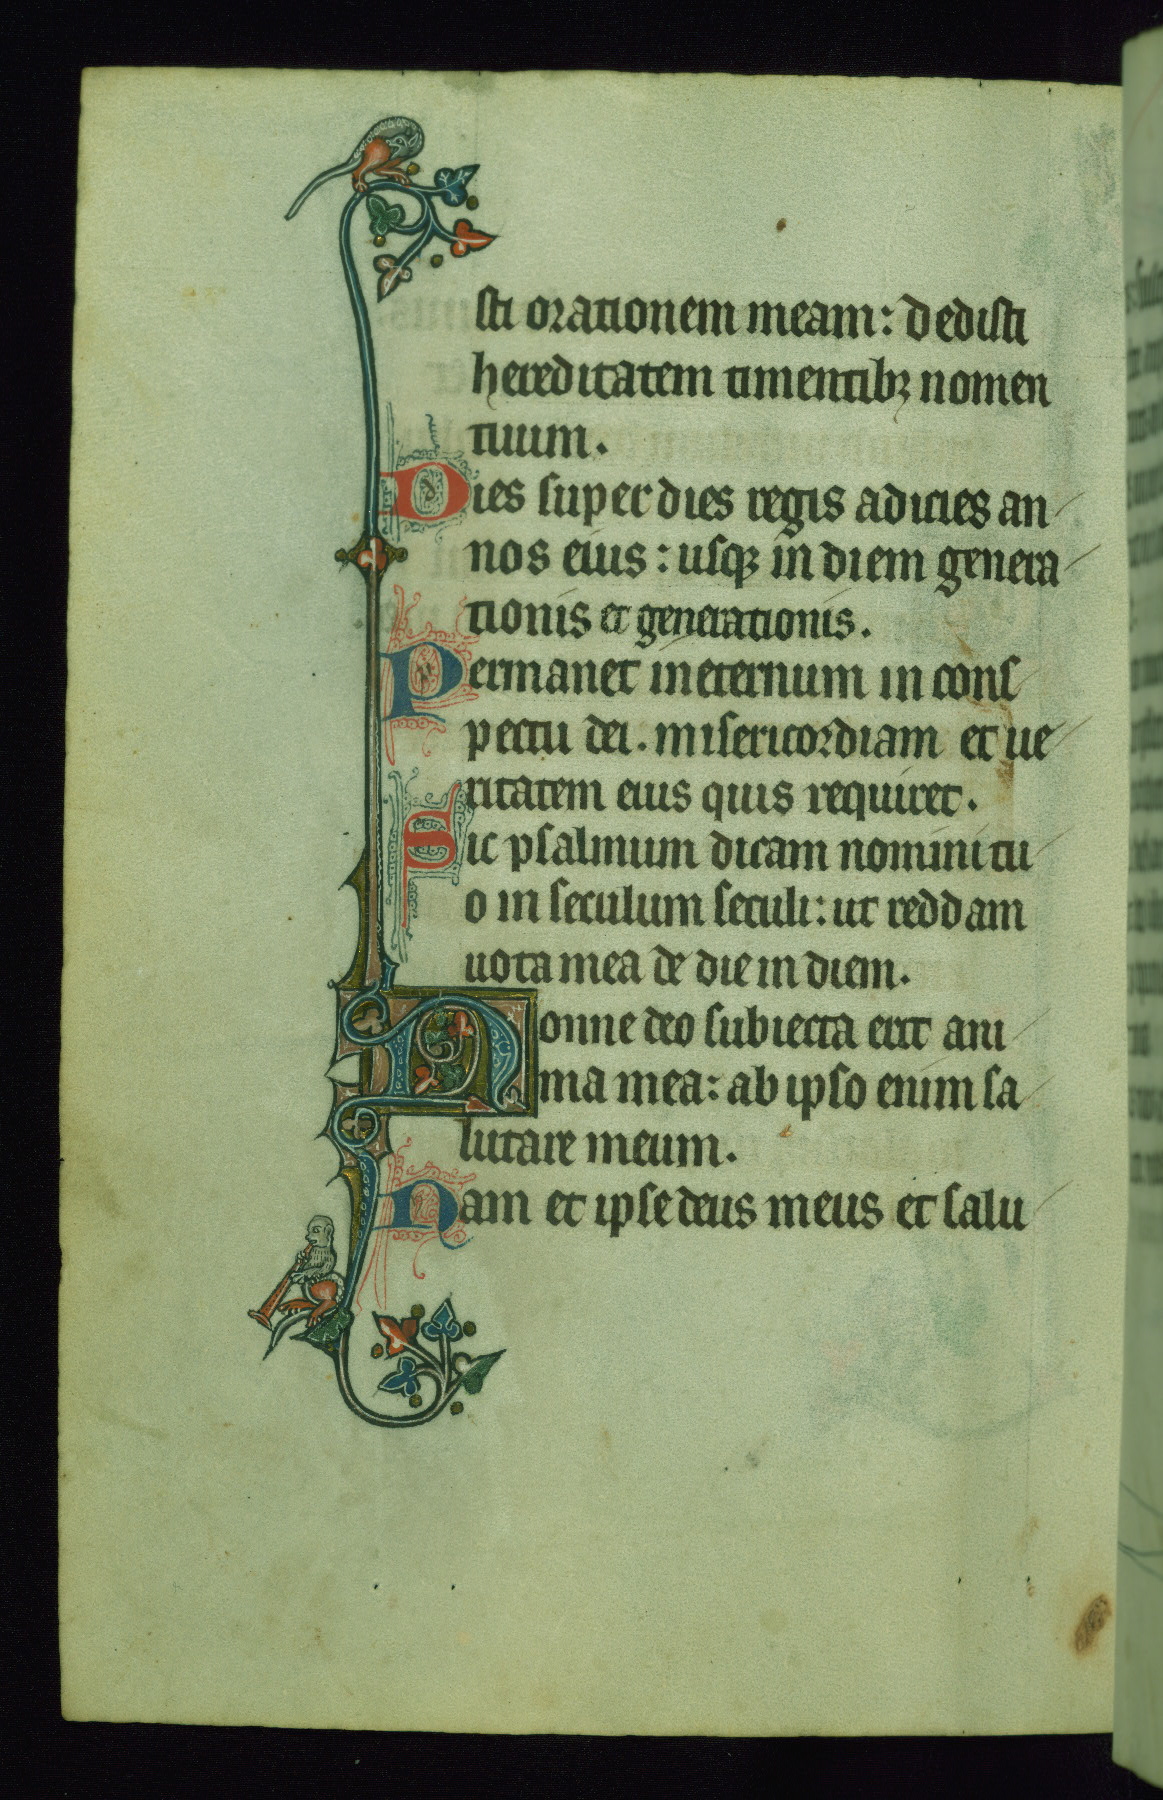 sti orationem meam: dedisti
hereditatem timentibꝫ nomen
tuum.
Dies super dies regis adicies an
nos eius: usqꝫ in diem genera
tionis et generationis.
Permanet ineternum in cons
pectu dei. misericordiam et ue
ritatem eius quis requiret.
Sic psalmum dicam nomini tu
o in seculum seculi: ut reddam
uota mea de die in diem.
Nonne deo subiecta erit ani
ma mea: ab ipso enim sa
lutare meum.
Nam et ipse deus meus et salu